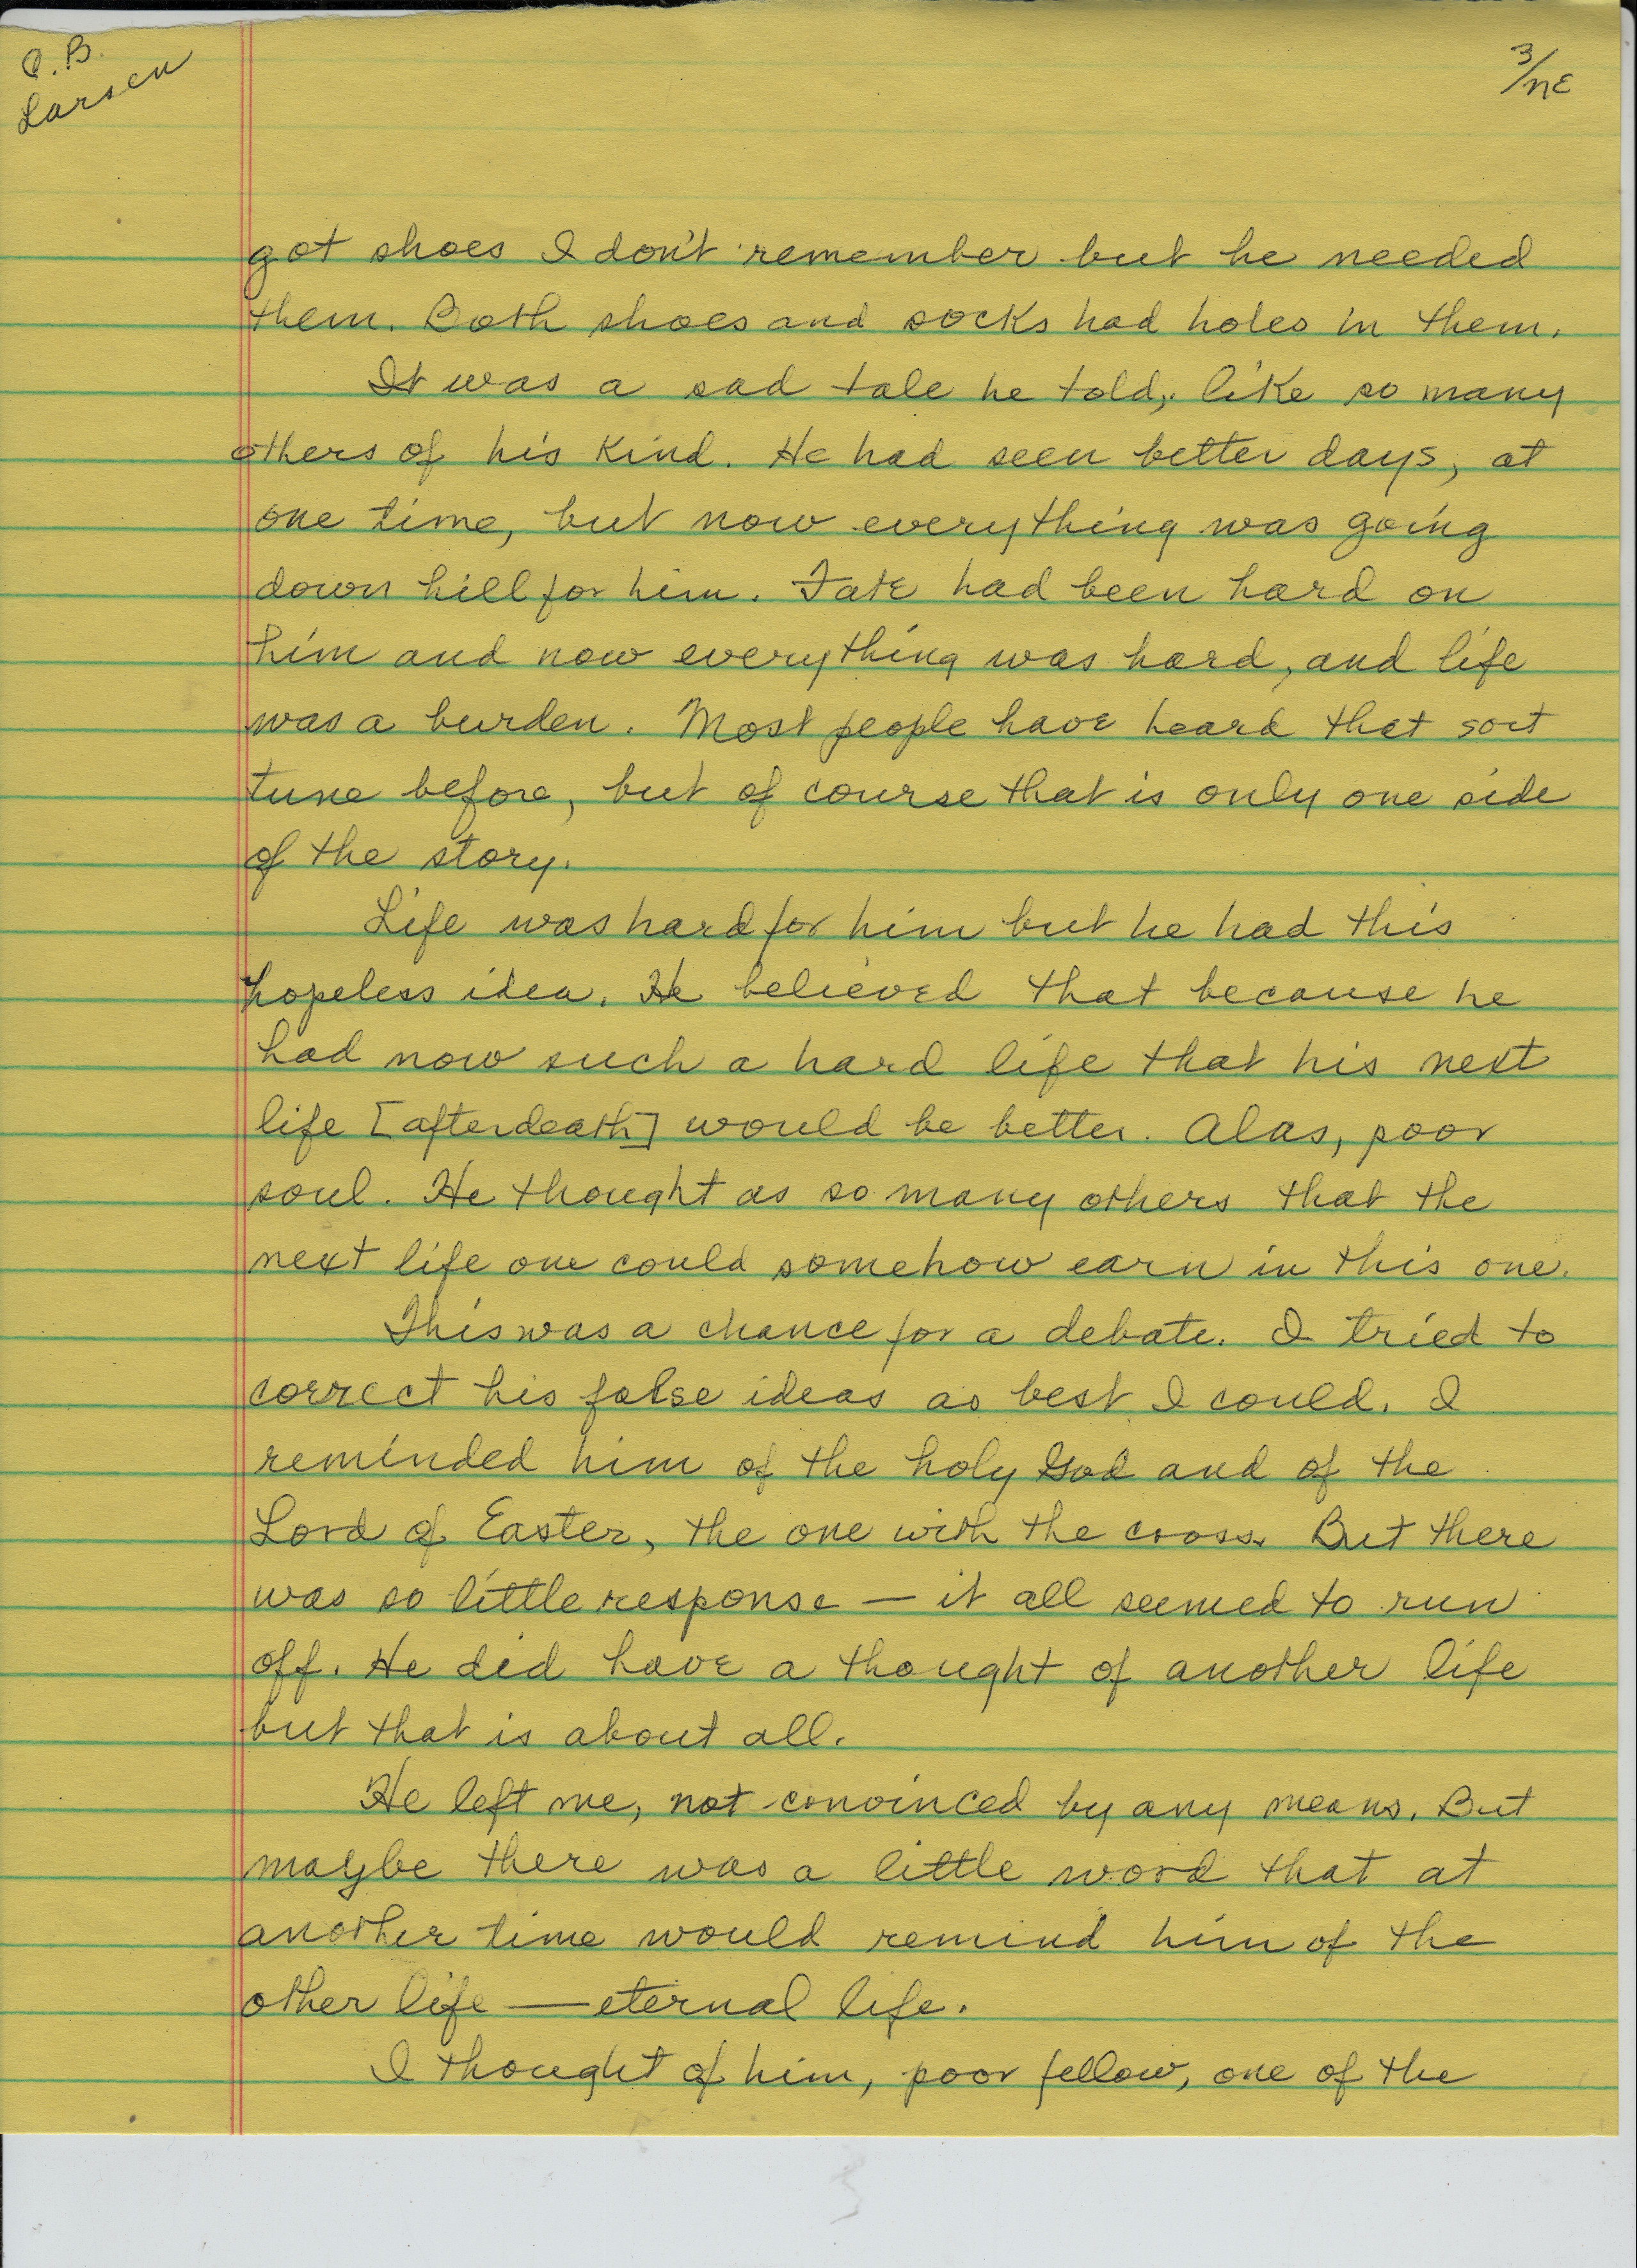 O. B.
Larsen
3/NE
got shoes I don't remember but he needed
them. Both shoes and socks had holes in them.
It was a sad tale he told, like so many
others of his kind. He had seen better days, at
one time, but now everything was going
down hill for him. Fate had been hard on
him and now everything was hard, and life
was a burden. Most people have heard that sort
tune before, but of course that is only one side
of the story.
Life was hard for him but he had this
hopeless idea. He believed that because he
had now such a hard life that his next
life [after death] would be better. Alas, poor
soul. He thought as so many others that the
next life one could somehow earn in this one.
This was a chance for a debate. I tried to
correct his false ideas as best I could. I
reminded him of the holy God and of the
Lord of Easter, the one with the cross. But there
was so little response — it all seemed to run
off. He did have a thought of another life
but that is about all.
He left me, not convinced by any means. But
maybe there was a little word that at
another time would remind him of the
other life — eternal life.
I thought of him, poor fellow, one of the